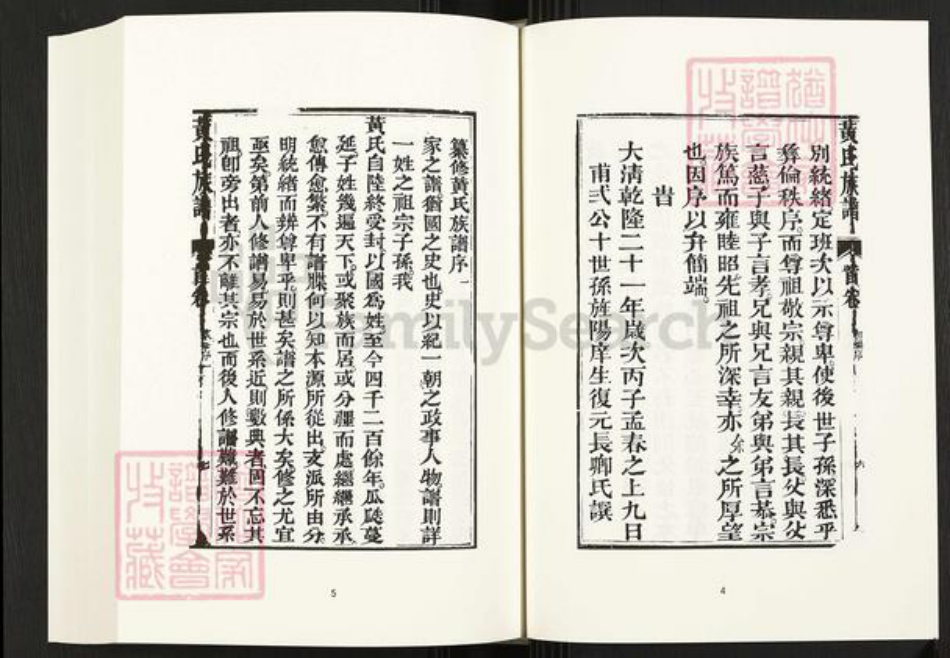 黃氏族譜
首卷
別統緒定班次以示尊卑使後世子孫深悉乎
彝倫秩序而尊祖敬宗親其親長其長父與父
言慈子與子言孝兄與兄言友弟與弟言恭宗
族篤而雍睦昭先祖之所深幸亦余之所厚望
也因序以弁簡端
旹
大清乾隆二十一年歲次丙子孟春之上九日
甫弍公十世孫旌陽庠生復元長卿氏譔
4
纂修黃氏族譜序
家之譜猶國之史也史以紀一朝之政事人物譜則詳
一姓之祖宗子孫我
黃氏自陸終受封以國為姓至今四千二百餘年瓜瓞蔓
延子姓幾遍天下或聚族而居或分疆而處繼繼承承
愈傳愈繁不有譜牒何以知本源所從出支派所由分
明統緒而辨尊卑乎則甚矣譜之所係大矣修之尤宜
亟矣第前人修譜易易於世系近則數典者固不忘其
祖卽旁出者亦不離其宗也而後人修譜難難於世系
黃氏族譜
首卷
5
FamilySearch